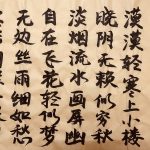 漠漠轻寒上小楼
晓阴无赖似穷秋
淡烟流水画屏幽
自在飞花轻似梦
无边丝雨细如愁